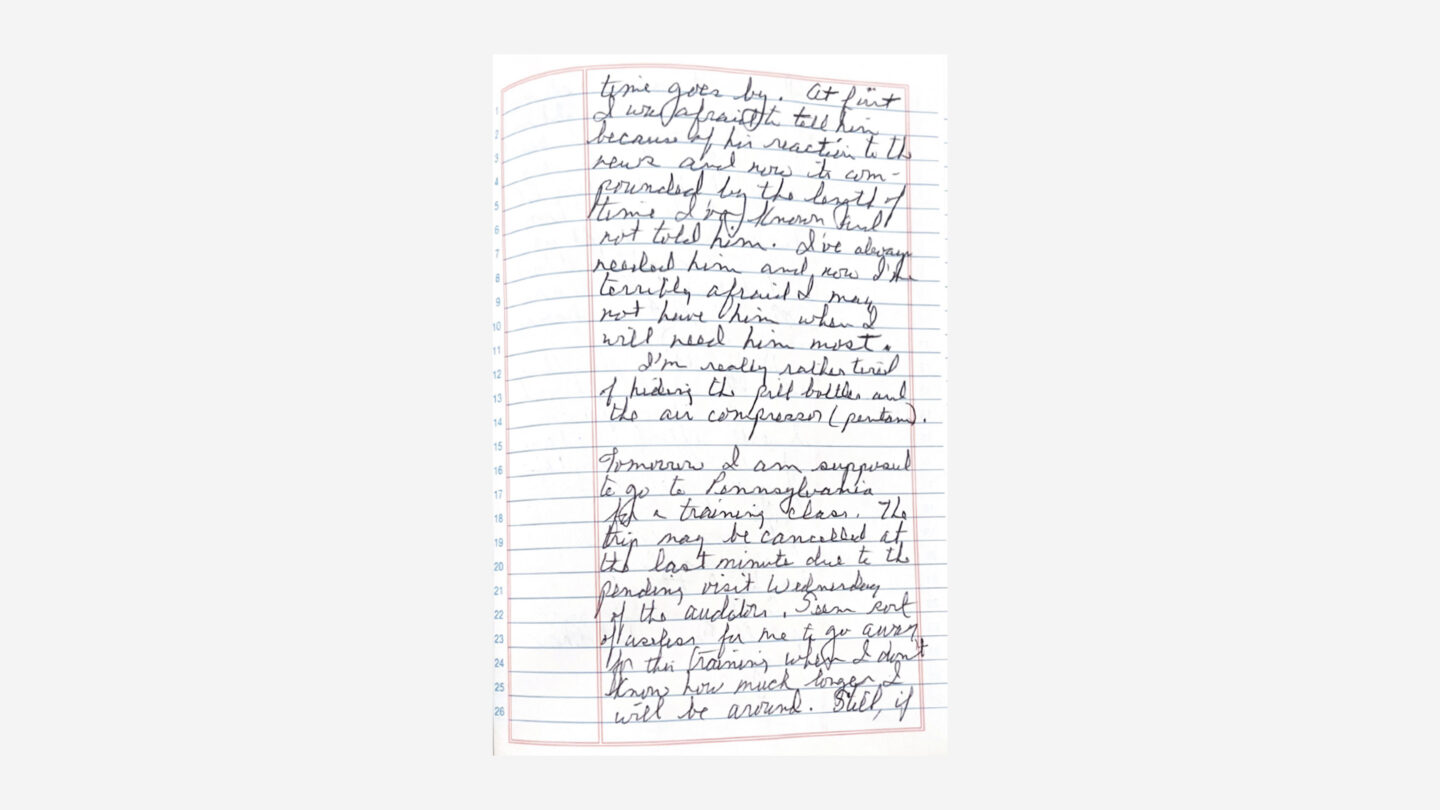 time goes by. At first
I was afraid to tell him
because of his reaction to the
news and now its com-
pounded by the length of
time I've known and
not told him. I've always
needed him and now I'm
terribly afraid I may
not have him when I
will need him most.
I'm really rather tired
of hiding the pill bottles and
the air compressor (pentam).
Tomorrow I am supposed
to go to Pennsylvania
for a training class. The
trip may be cancelled at
the last minute due to the
pending visit Wednesday
of the auditors. Seem sort
of useless for me to go away
for this training when I don't
know how much longer I
will be around. Still, if
1
2
3
4
5
6
7
8
9
10
11
12
13
14
15
16
17
18
19
20
21
22
23
24
25
26